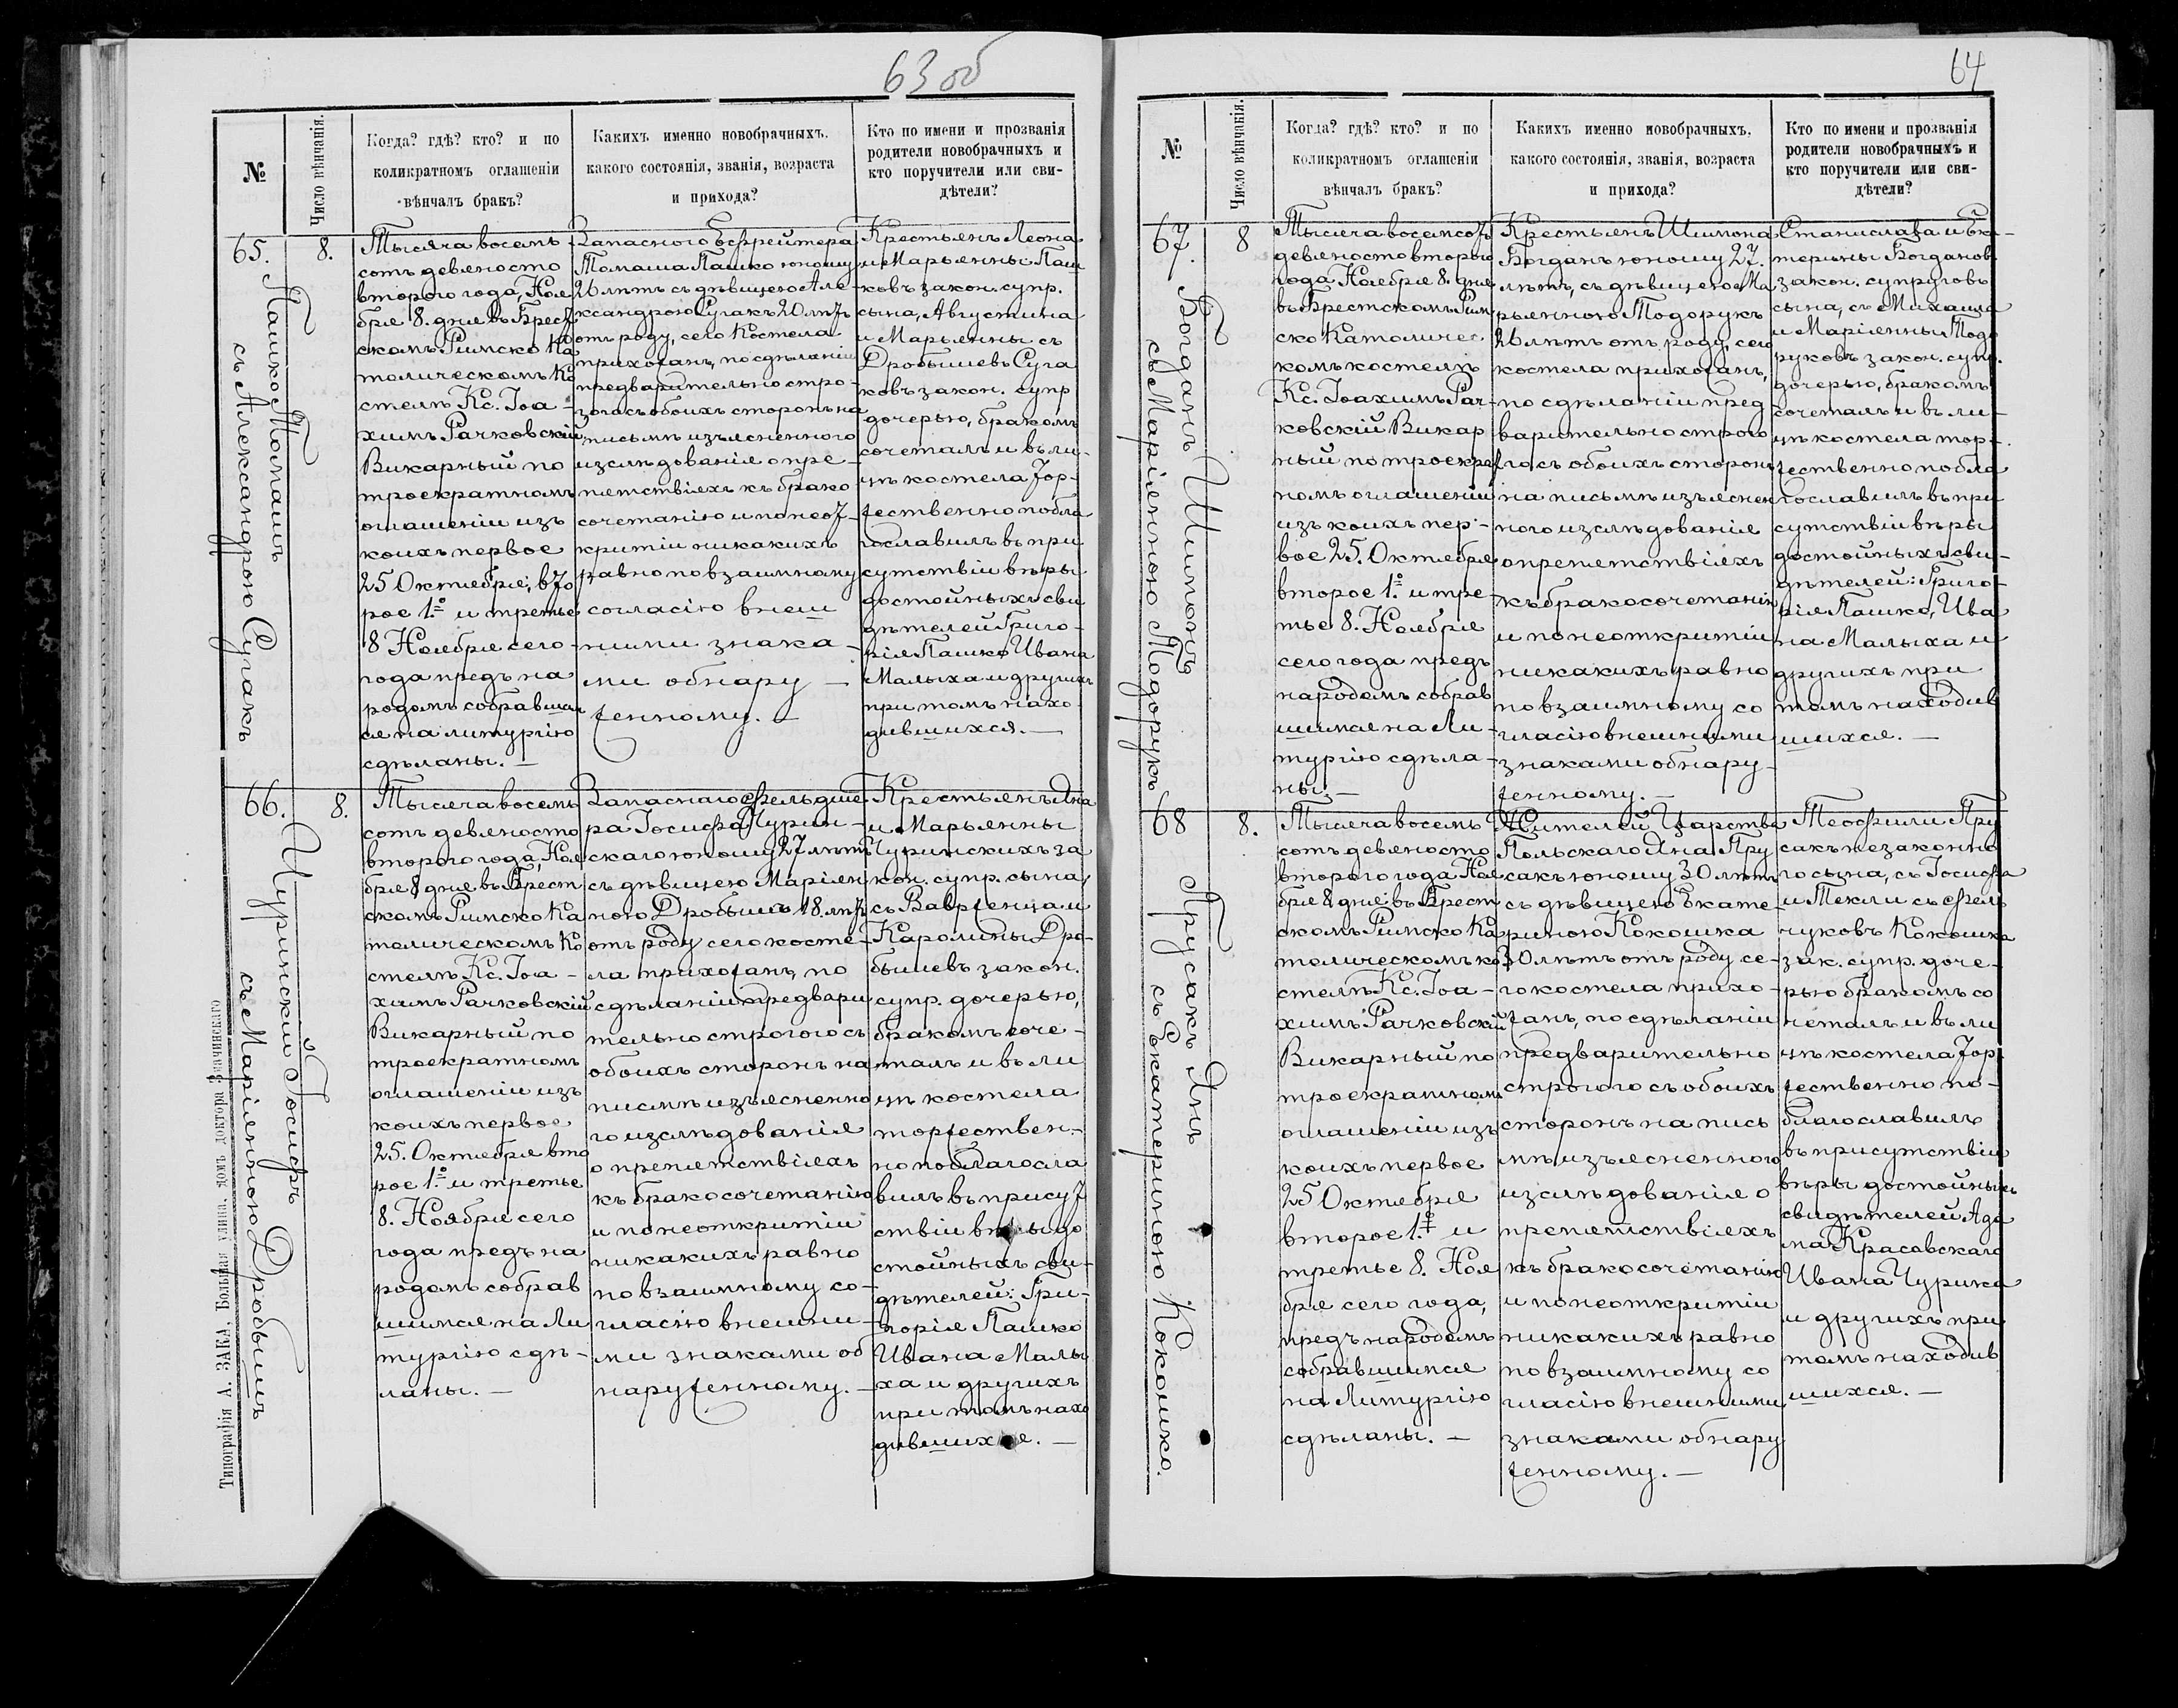 63 об
№
Число вѣнчанія.
Когда? гдѣ? кто? и по
коликратномъ оглашеніи
вѣнчалъ бракъ?
Какихъ именно новобрачныхъ,
какого состоянія, званія, возраста
и прихода?
Кто по имени и прозванія
родители новобрачныхъ и
кто поручители или сви-
дѣтели?
65.
Пашко Томашъ
съ Александрою Сугакъ
8.
Тысяча восемь
сотъ девяносто
второго года, Ноя
бря 8. дня въ Брест
скомъ Римско Ка
толическомъ Ко
стелѣ Кс. Іоа -
химъ Рачковскій
Викарный по
троекратномъ
оглашеніи изъ
коихъ первое
25 Октября, вто
рое 1º и третье
8 Ноября сего
года предъ на
родомъ собравшим
ся на литургію
сдѣланы. —
Запасного Ефрейтера
Томаша Пашко юношу
26 лѣтъ съ дѣвицею Але-
ксандрою Сугакъ 20 лѣтъ
отъ роду, сего Костела
прихожанъ, по сдѣланіи
предварительно стро-
гога съ обоихъ сторонъ на
письмѣ изъясненного
изслѣдованія о пре-
пятствіяхъ къ брако
сочетанію и по неот-
критіи никакихъ
равно по взаимному
согласію внеш
ними знака -
ми обнару —
женному. —
Крестьянъ Леона
и Марьянны Паш
ковъ закон. супр.
сына, Августина
и Марьянны съ
Дробышевъ Суга
ковъ закон. супр
дочерью, бракомъ
сочеталъ и въ ли-
цѣ костела тор-
жественно побла
гославилъ въ при
сутствіи вѣры
достойныхъ сви
дѣтелей Григо-
рія Пашко Ивана
Малыха и другихъ
при томъ нахо
дившихся. —
66.
Чуринскій Іосифъ
съ Маріянною Дробышъ
8.
Тысяча восемь
сотъ девяносто
второго года, Ноя
бря 8 дня въ Брест
скомъ Римско Ка
толическомъ Ко
стелѣ Кс. Іоа -
химъ Рачковскій
Викарный по
троекратномъ
оглашеніи изъ
коихъ первое
25. Октября вто
рое 1º и третье
8. Ноября сего
года предъ на
родомъ собрав
шимся на Ли
тургію сдѣ -
ланы. —
Запаснаго Фельдше
ра Іосифа Чурин -
скаго юношу 27 лѣтъ
съ дѣвицею Маріян
ною Дробышъ 18. лѣтъ
отъ роду сего косте-
ла прихожанъ, по
сдѣланіи предвари
тельно строгого съ
обоихъ сторонъ на
писмѣ изъясненно
го изслѣдованія
о препятствіяхъ
къ бракосочетанію
и по неоткритіи
никакихъ равно
по взаимному со-
гласію внешни-
ми знаками об
наруженному. —
Крестьянъ Яна
и Марьянны
Чуринскихъ за
кон. супр. сына,
съ Вавренца и
Каролины Дро-
бышевъ закон.
супр. дочерью,
бракомъ соче -
талъ и въ ли
цѣ костела
торжествен.-
но поблагосла
вилъ въ присут
ствіи вѣры до
стойныхъ сви-
дѣтелей: Гри-
горія Пашко
Ивана Малы
ха и другихъ
при томъ нахо
дившихся. —
Типографія А. ЗАКА, Большая улица, домъ доктора Значинскаго
64
№
Число вѣнчанія.
Когда? гдѣ? кто? и по
коликратномъ оглашеніи
вѣнчалъ бракъ?
Какихъ именно новобрачныхъ,
какого состоянія, званія, возраста
и прихода?
Кто по имени и прозванія
родители новобрачныхъ и
кто поручители или сви-
дѣтели?
67.
Богданъ Шимонъ
съ Маріянною Тодорукъ
8
Тысяча восемсотъ
девяносто второго
года Ноября 8. дня
въ Брестскомъ Рим
ско Католичес
комъ костелѣ
Кс. Іоахимъ Рач-
ковскій Викар
ный по троекрат
номъ оглашеніи
изъ коихъ пер -
вое 25. Октября
второе 1º и тре-
тье 8. Ноября
сего года предъ
народомъ собрав
шимся на Ли -
тургію сдѣла-
ны. —
Крестьянъ Шимона
Богданъ юношу 27.
лѣтъ, съ дѣвицею Ма
рьянною Тодорукъ
26 лѣтъ отъ роду, сего
костела прихожанъ,
по сдѣланіи пред
варительно строго
го съ обоихъ сторонъ
на письмѣ изъяснен
ного изслѣдованія
о препятствіяхъ
къ бракосочетанію
и по неоткритіи
никакихъ равно
по взаимному со
гласію внешними
знаками обнару-
женному. —
Станислава и Ека-
терины Богдановъ
закон. супруговъ
сына, съ Михаила
и Маріянны Тодо
руковъ закон. супр.
дочерью, бракомъ
сочеталъ и въ ли-
цѣ костела тор-
жественно побла
гославилъ въ при
сутствіи вѣры
достойныхъ сви-
дѣтелей: Григо-
рія Пашко, Ива
на Малыха и
другихъ при
томъ находив
шихся. —
68
Прусакъ Янъ
съ Екатериною Кокошко.
8.
Тысяча восемь
сотъ девяносто
второго года Ноя
бря 8 дня въ Брест
скомъ Римско Ка
толическомъ ко
стелѣ Кс. Іоа -
химъ Рачковскій
Викарный по
троекратномъ
оглашеніи изъ
коихъ первое
25 Октября
второе 1º и
третье 8. Ноя
бря сего года,
предъ народомъ
собравшимся
на Литургію
сдѣланы. —
Жителей Царства
Польскаго Яна Пру
сакъ юношу 30 лѣтъ
съ дѣвицею Екате-
риною Кокошка
30 лѣтъ отъ роду се-
го костела прихо -
жанъ, по сдѣланіи
предварительно
строгого съ обоихъ
сторонъ на пись
мѣ изъясненного
изслѣдованія о
препятствіяхъ
къ бракосочетанію
и по неоткритіи
никакихъ равно
по взаимному со
гласію внешними
знаками обнару
женному. —
Теофили Пру
сакъ незаконно
го сына, съ Іосифа
и Текли съ Фель
чуковъ Кокошка
зак. супр. доче-
рью бракомъ со
четалъ и въ ли
цѣ костела тор-
жественно по-
благославилъ
въ присутствіи
вѣры достойныхъ
свидѣтелей Ада
ма Красовскаго
Ивана Чурика
и другихъ при
томъ находив
шихся. —